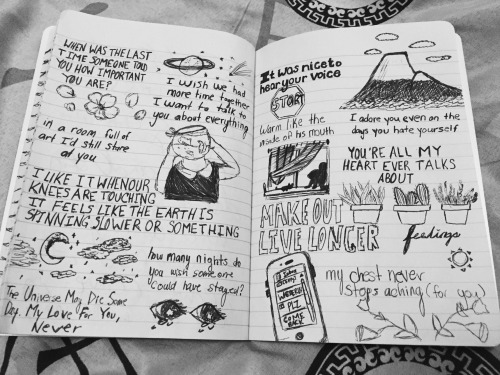 WHEN WAS THE LAST
TIME SOMEONE TOLD
YOU HOW IMPORTANT
YOU ARE?
I wish we had
more time together
I want to talk to
you about everything
in a room full of
art I'd still stare
at you
I LIKE IT WHEN OUR
KNEES ARE TOUCHING
IT FEELS LIKE THE EARTH IS
SPINNING SLOWER OR SOMETHING
how many nights do
you wish someone
could have stayed?
The Universe May Die Some
Day. My Love For You,
Never
It was nice to
hear your voice
STOP
Warm like the
inside of his mouth
I adore you even on the
days you hate yourself
YOU'RE ALL MY
HEART EVER TALKS
ABOUT
MAKE OUT
LIVE LONGER
feelings
PLZ
COME
BACK
my chest never
stops aching (for you)